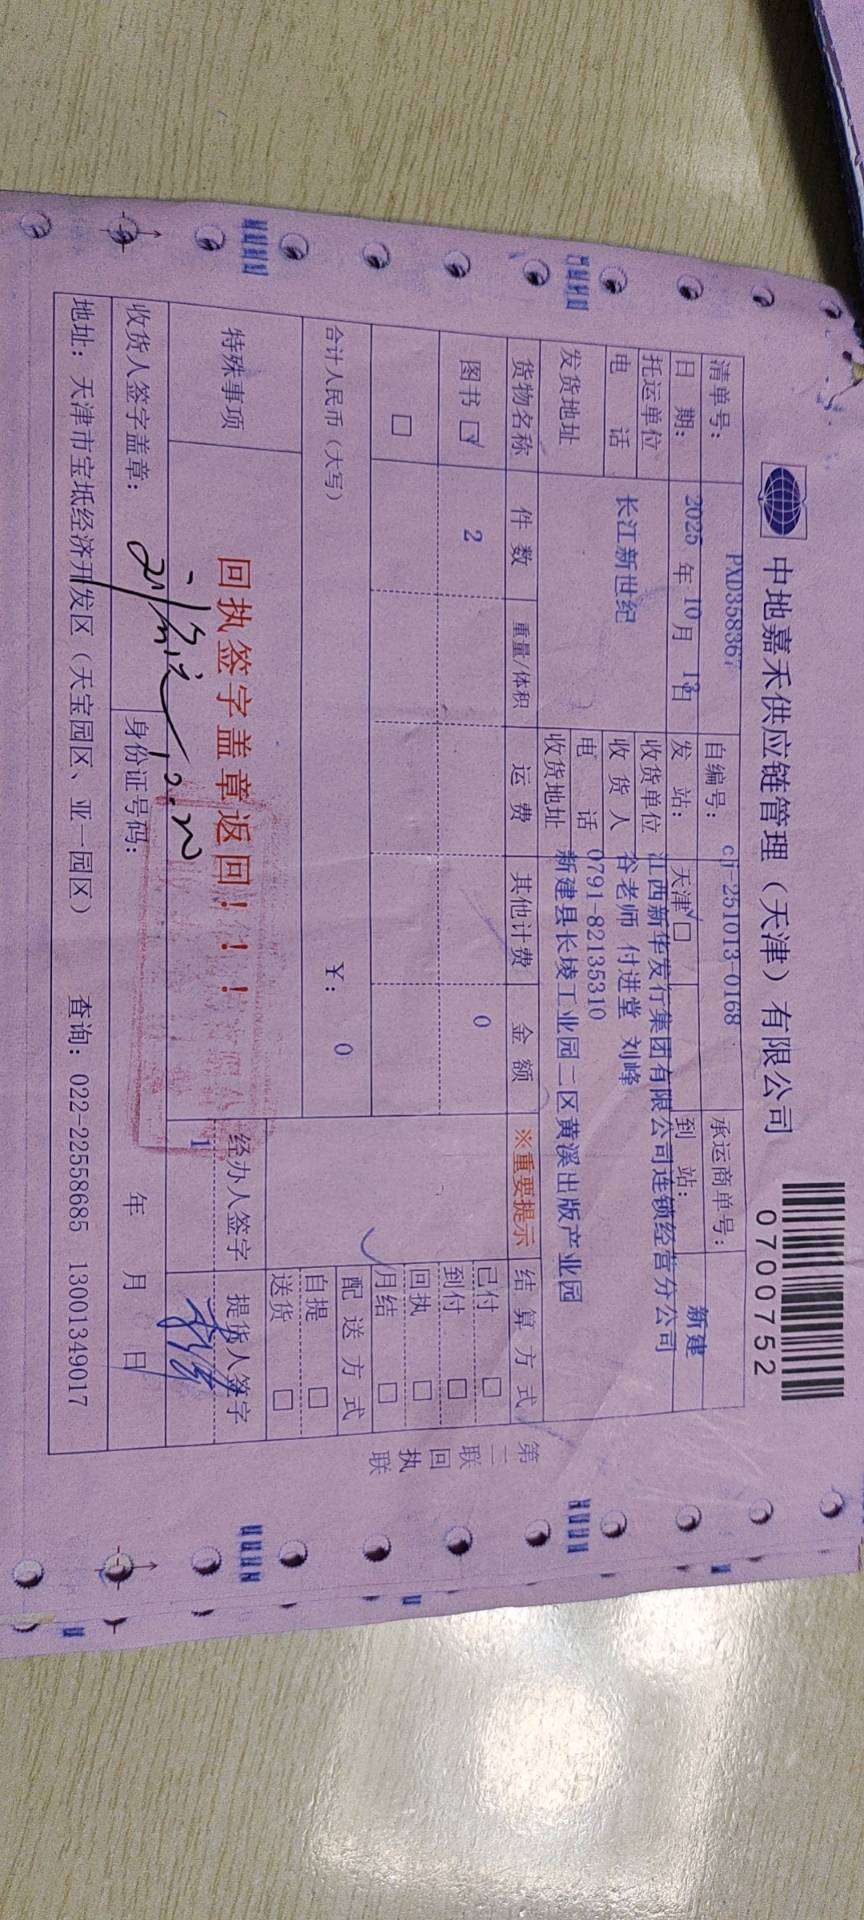 中地嘉禾供应链管理（天津）有限公司
0700752
清单号： PXD358367 自编号： cj-251013-0168 承运商单号：
日 期： 2025 年 10 月 13 日 发 站： 天津 到 站： 新建
托运单位 收货单位 江西新华发行集团有限公司连锁经营分公司
电 话 长江新世纪 收 货 人 谷老师 付进堂 刘峰
发货地址 电 话 0791-82135310
收货地址 新建县长堎工业园二区黄溪出版产业园
货物名称 件 数 重量/体积 运 费 其他计费 金 额 ※重要提示 结 算 方 式
图书 2 0 已付
到付
回执
月结
合计人民币（大写） ￥： 0 配 送 方 式
自提
送货
特殊事项 回执签字盖章返回！！！ 经办人签字 提货人签字
1
收货人签字盖章： 身份证号码： 年 月 日
地址：天津市宝坻经济开发区（天宝园区、亚一园区） 查询：022-22558685 13001349017
第二联 回执联